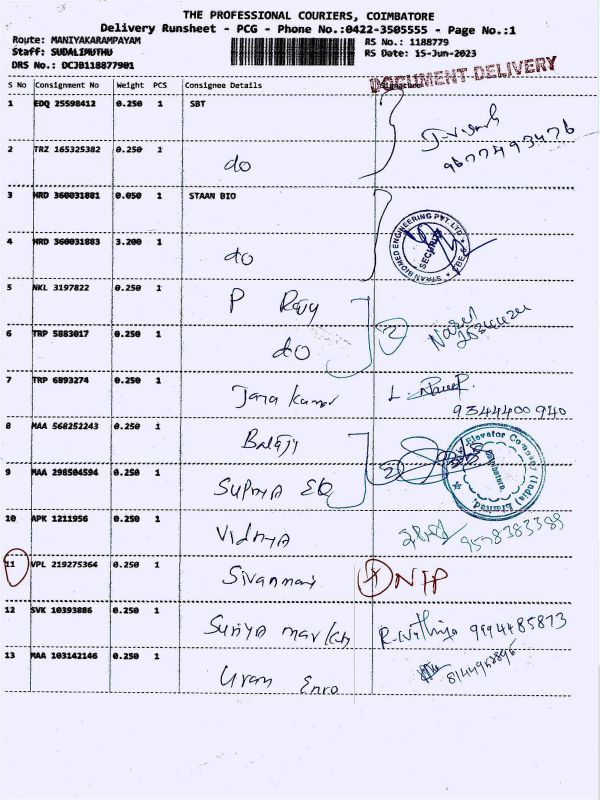 THE PROFESSIONAL COURIERS, COIMBATORE
Delivery Runsheet - PCG - Phone No.:0422-3505555 - Page No.:1
Route: MANIYAKARAMPAYAM RS No.: 1188779
Staff: SUDALIMUTHU RS Date: 15-Jun-2023
DRS No.: DCJB118877901
DOCUMENT DELIVERY
S No Consignment No Weight PCS Consignee Details Signature
1 EDQ 25598412 0.250 1 SBT
9677493476
2 TRZ 165325382 0.250 1 do
3 MRD 360031881 0.050 1 STAAN BIO
STAAN BIOMED ENGINEERING PVT. LTD
SECURITY
4 MRD 360031883 3.200 1 do
5 NKL 3197822 0.250 1 P
6 TRP 5883017 0.250 1 do 2
7 TRP 6893274 0.250 1 Jaya kumar L.
9344400940
8 MAA 568252243 0.250 1 Balaji
Elevator Company (India) Limited
Coimbatore
9 MAA 298504594 0.250 1 Supriya 2
10 APK 1211956 0.250 1 Vidhya 9578383388
11 VPL 219275364 0.250 1 X NTP
12 SVK 10393886 0.250 1 Suriya R. Nithiya 9994485873
13 MAA 103142146 0.250 1 Uram Enro